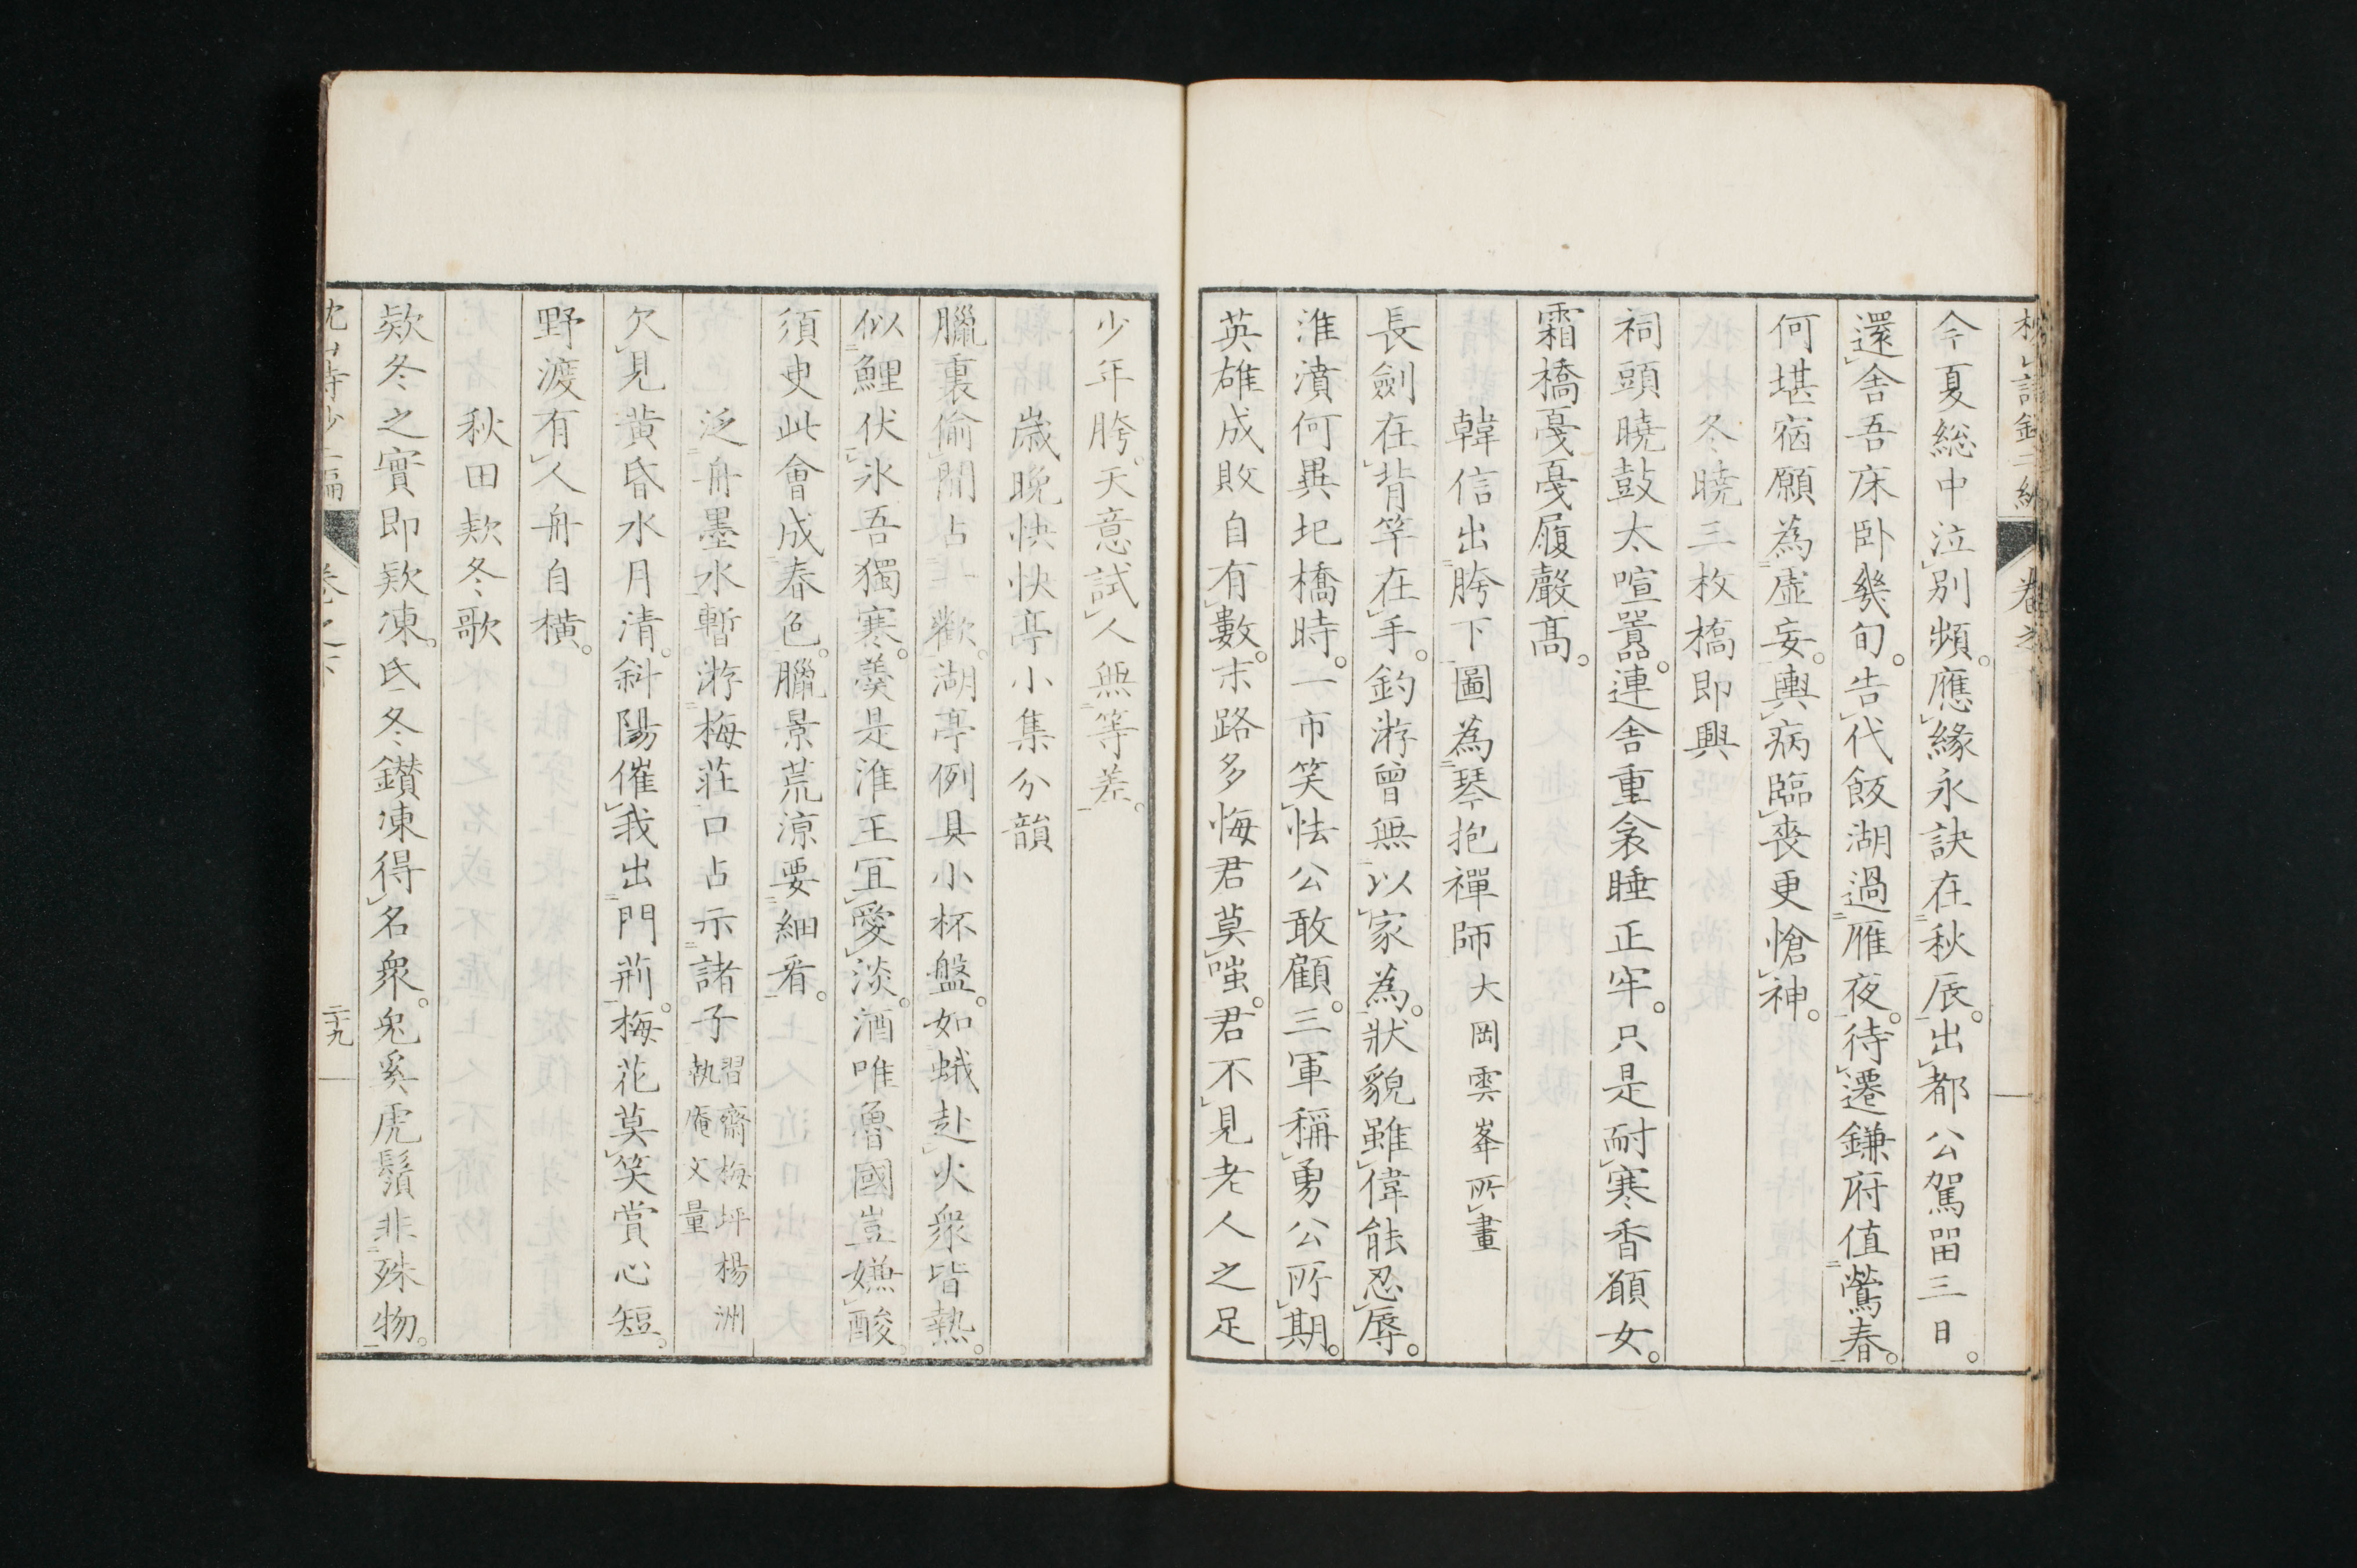 今夏総中泣別頻。應緣永訣在秋辰。出都公駕畱三日。
還舍吾床卧幾旬。告代飯湖過雁夜。待遷鎌府値鶯春。
何堪宿願為虛妄。輿病臨喪更愴神。
冬曉三枚橋即興
祠頭曉鼓太喧囂。連舍重衾睡正牢。只是耐寒香願女。
霜橋戞戞履聲髙。
韓信出胯下圖為琴抱禪師大岡雲峯所畫
長劍在背竿在手。釣游曾無以家為。狀貌雖偉能忍辱。
淮濆何異圯橋時。一市笑怯公敢顧。三軍稱勇公所期。
英雄成敗自有數。末路多悔君莫嗤。君不見老人之足
少年胯。天意試人無等差。
歳晩快快亭小集分韻
臘裏偷閒占一歡。湖亭例具小杯盤。如蛾赴火衆皆熱。
似鯉伏氷吾獨寒。羮是淮王冝愛淡。酒唯魯國豈嫌酸。
須更此會成春色。臘景荒凉要細看。
泛舟墨水暫游梅莊口占示諸子習齋梅坪楊洲
執庵文量
欠見黄昏水月清。斜陽催我出門荊。梅花莫笑賞心短。
野渡有人舟自橫。
秋田欵冬歌
欵冬之實即欵凍。氐冬鑽凍得名衆。兔奚虎鬚非殊物。
卷之下
二十九